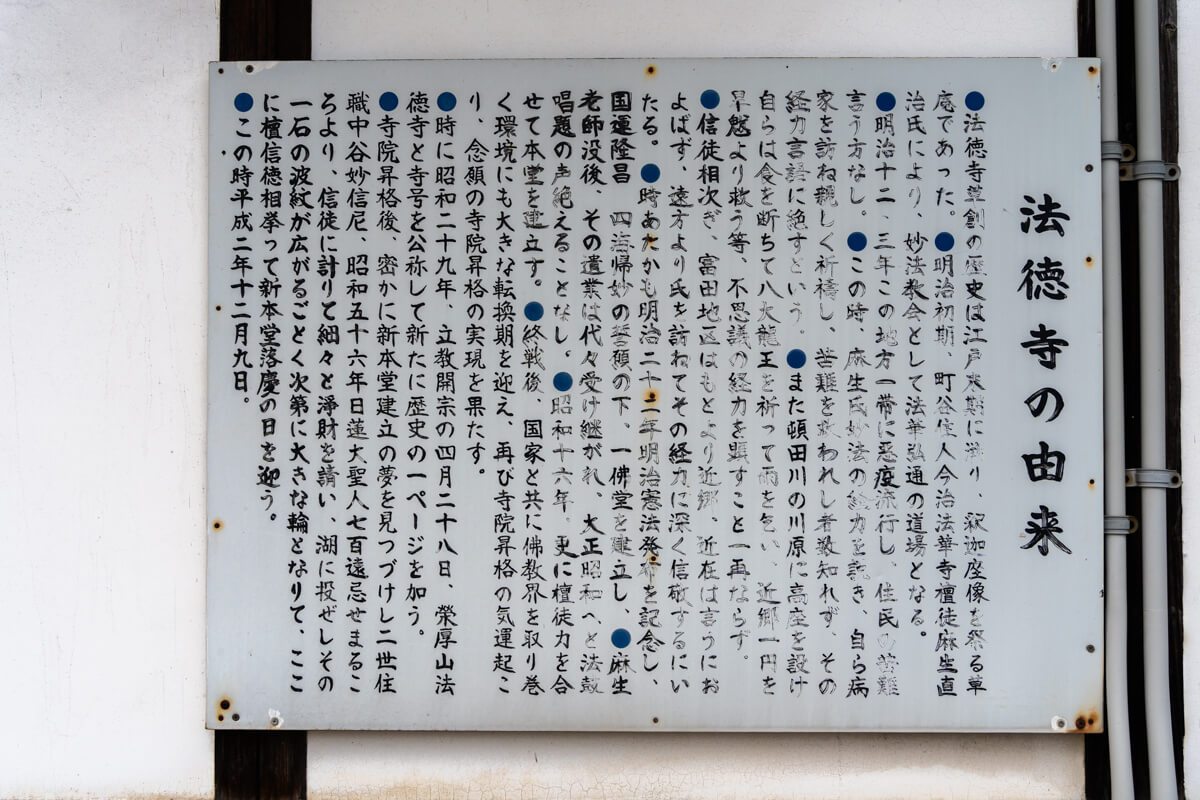 法徳寺の由来
●法徳寺草創の歴史は江戸末期に溯り、釈迦座像を祭る草
庵であった。●明治初期、町谷住人今治法華寺檀徒麻生直
治氏により、妙法教会として法華弘通の道場となる。
●明治十二、三年この地方一帯に悪疫流行し、住民の苦難
言う方なし。●この時、麻生氏妙法の経力を説き、自ら病
家を訪ね親しく祈禱し、苦難を救われし者数知れず、その
経力言語に絶すという。●また頓田川の川原に高座を設け
自らは食を断ちて八大龍王を祈って雨を乞い、近郷一円を
旱魃より救う等、不思議の経力を顕すこと一再ならず。
●信徒相次ぎ、富田地区はもとより近郷、近在は言うにお
よばず、遠方より氏を訪ねてその経力に深く信敬するにい
たる。●時あたかも明治二十二年明治憲法発布を記念し、
国運隆昌 四海帰妙の誓願の下、一佛堂を建立し、●麻生
老師没後、その遺業は代々受け継がれ、大正昭和へと法鼓
唱題の声絶えることなし。●昭和十六年。更に檀徒力を合
せて本堂を建立す。●終戦後、国家と共に佛教界を取り巻
く環境にも大きな転換期を迎え、再び寺院昇格の気運起こ
り、念願の寺院昇格の実現を果たす。
●時に昭和二十九年、立教開宗の四月二十八日、榮厚山法
徳寺と寺号を公称して新たに歴史の一ページを加う。
●寺院昇格後、密かに新本堂建立の夢を見つづけし二世住
職中谷妙信尼、昭和五十六年日蓮大聖人七百遠忌せまるこ
ろより、信徒に計りて細々と淨財を請い、湖に投ぜしその
一石の波紋が広がるごとく次第に大きな輪となりて、ここ
に檀信徳相挙って新本堂落慶の日を迎う。
●この時平成二年十二月九日。